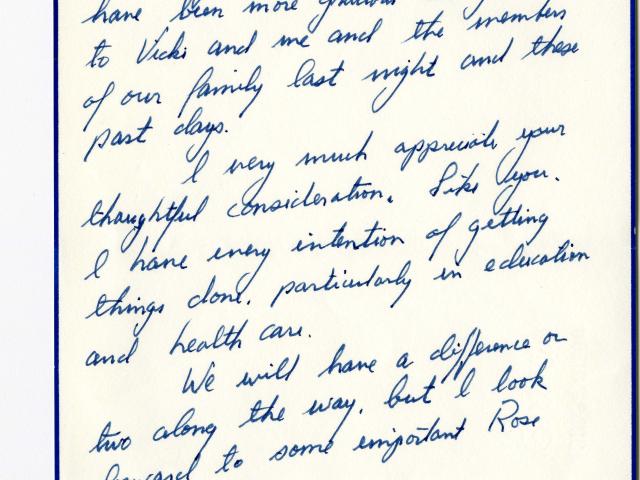 have been more gracious
to Vicki and me and the members
of our family last night and these
past days.
I very much appreciate your
thoughtful consideration. Like you.
I have every intention of getting
things done. particularly in education
and health care.
We will have a difference or
two along the way. but I look
forward to some important Rose